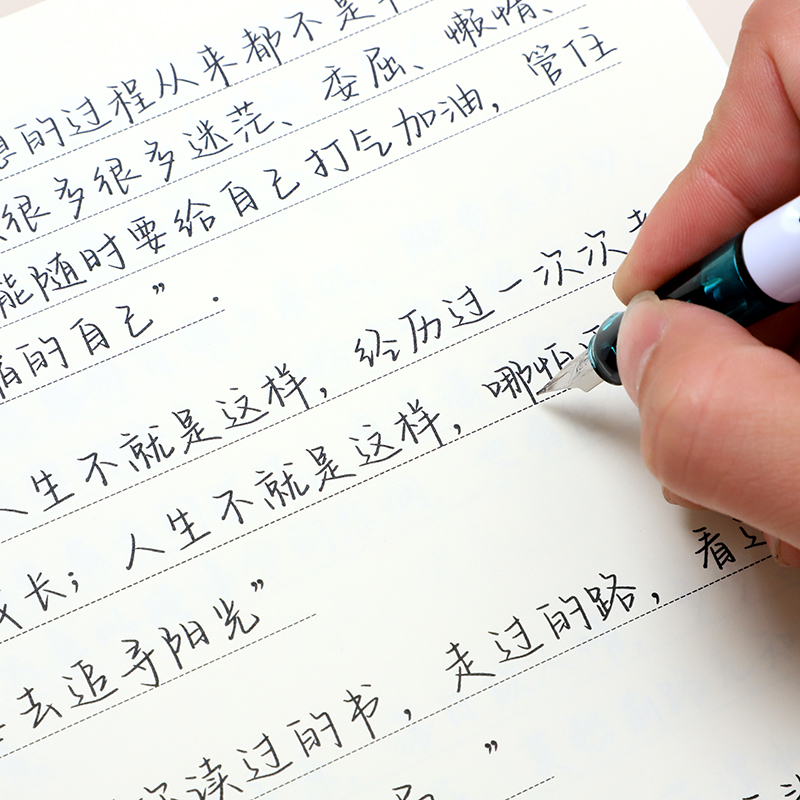 的过程从来都不是
很多很多迷茫、委屈、懒惰、
能随时要给自己打气加油，管住
的自己”．
人生不就是这样，经历过一次次
长；人生不就是这样，哪怕
去追寻阳光”
看过
读过的书，走过的路，
”